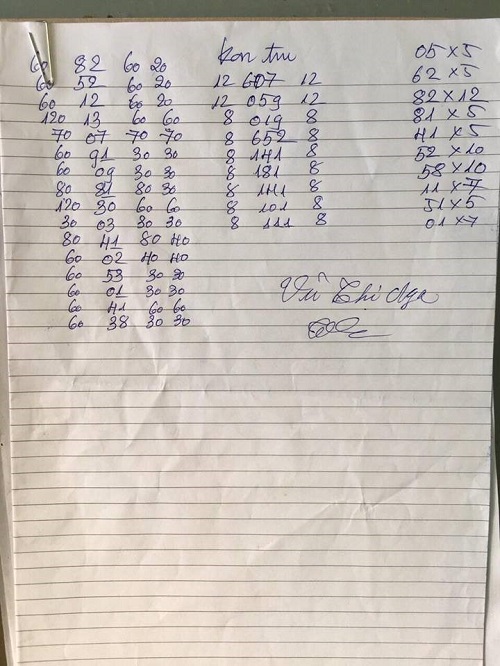 60 82 60 20 Kon tum 05 x 5
60 52 60 20 12 607 12 62 x 5
60 12 60 20 12 059 12 82 x 12
120 13 60 60 8 019 8 81 x 5
70 07 70 70 8 652 8 41 x 5
60 91 30 30 8 141 8 52 x 10
60 09 30 30 8 181 8 58 x 10
80 81 80 30 8 141 8 11 x 7
120 30 60 60 8 101 8 51 x 5
30 03 30 30 8 111 8 01 x 7
80 41 80 40
60 02 40 40
60 53 30 30
60 01 30 30
60 41 60 60
60 38 30 30
Vũ Thị Nga